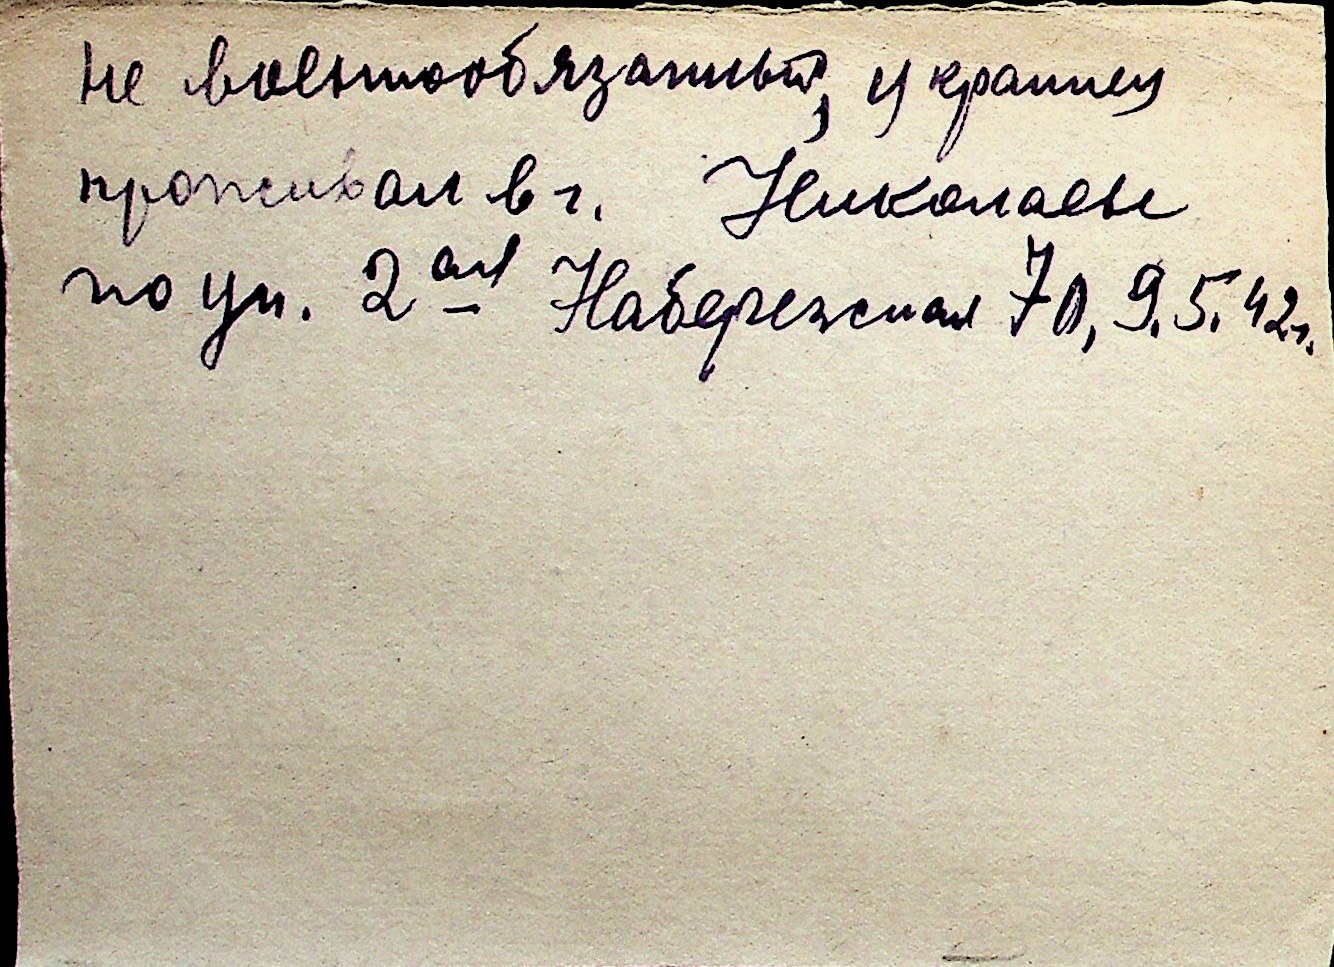 не военнообязанный, украинец
проживал в г. Николаеве
по ул. 2ая Набережная 70, 9.5.42г.